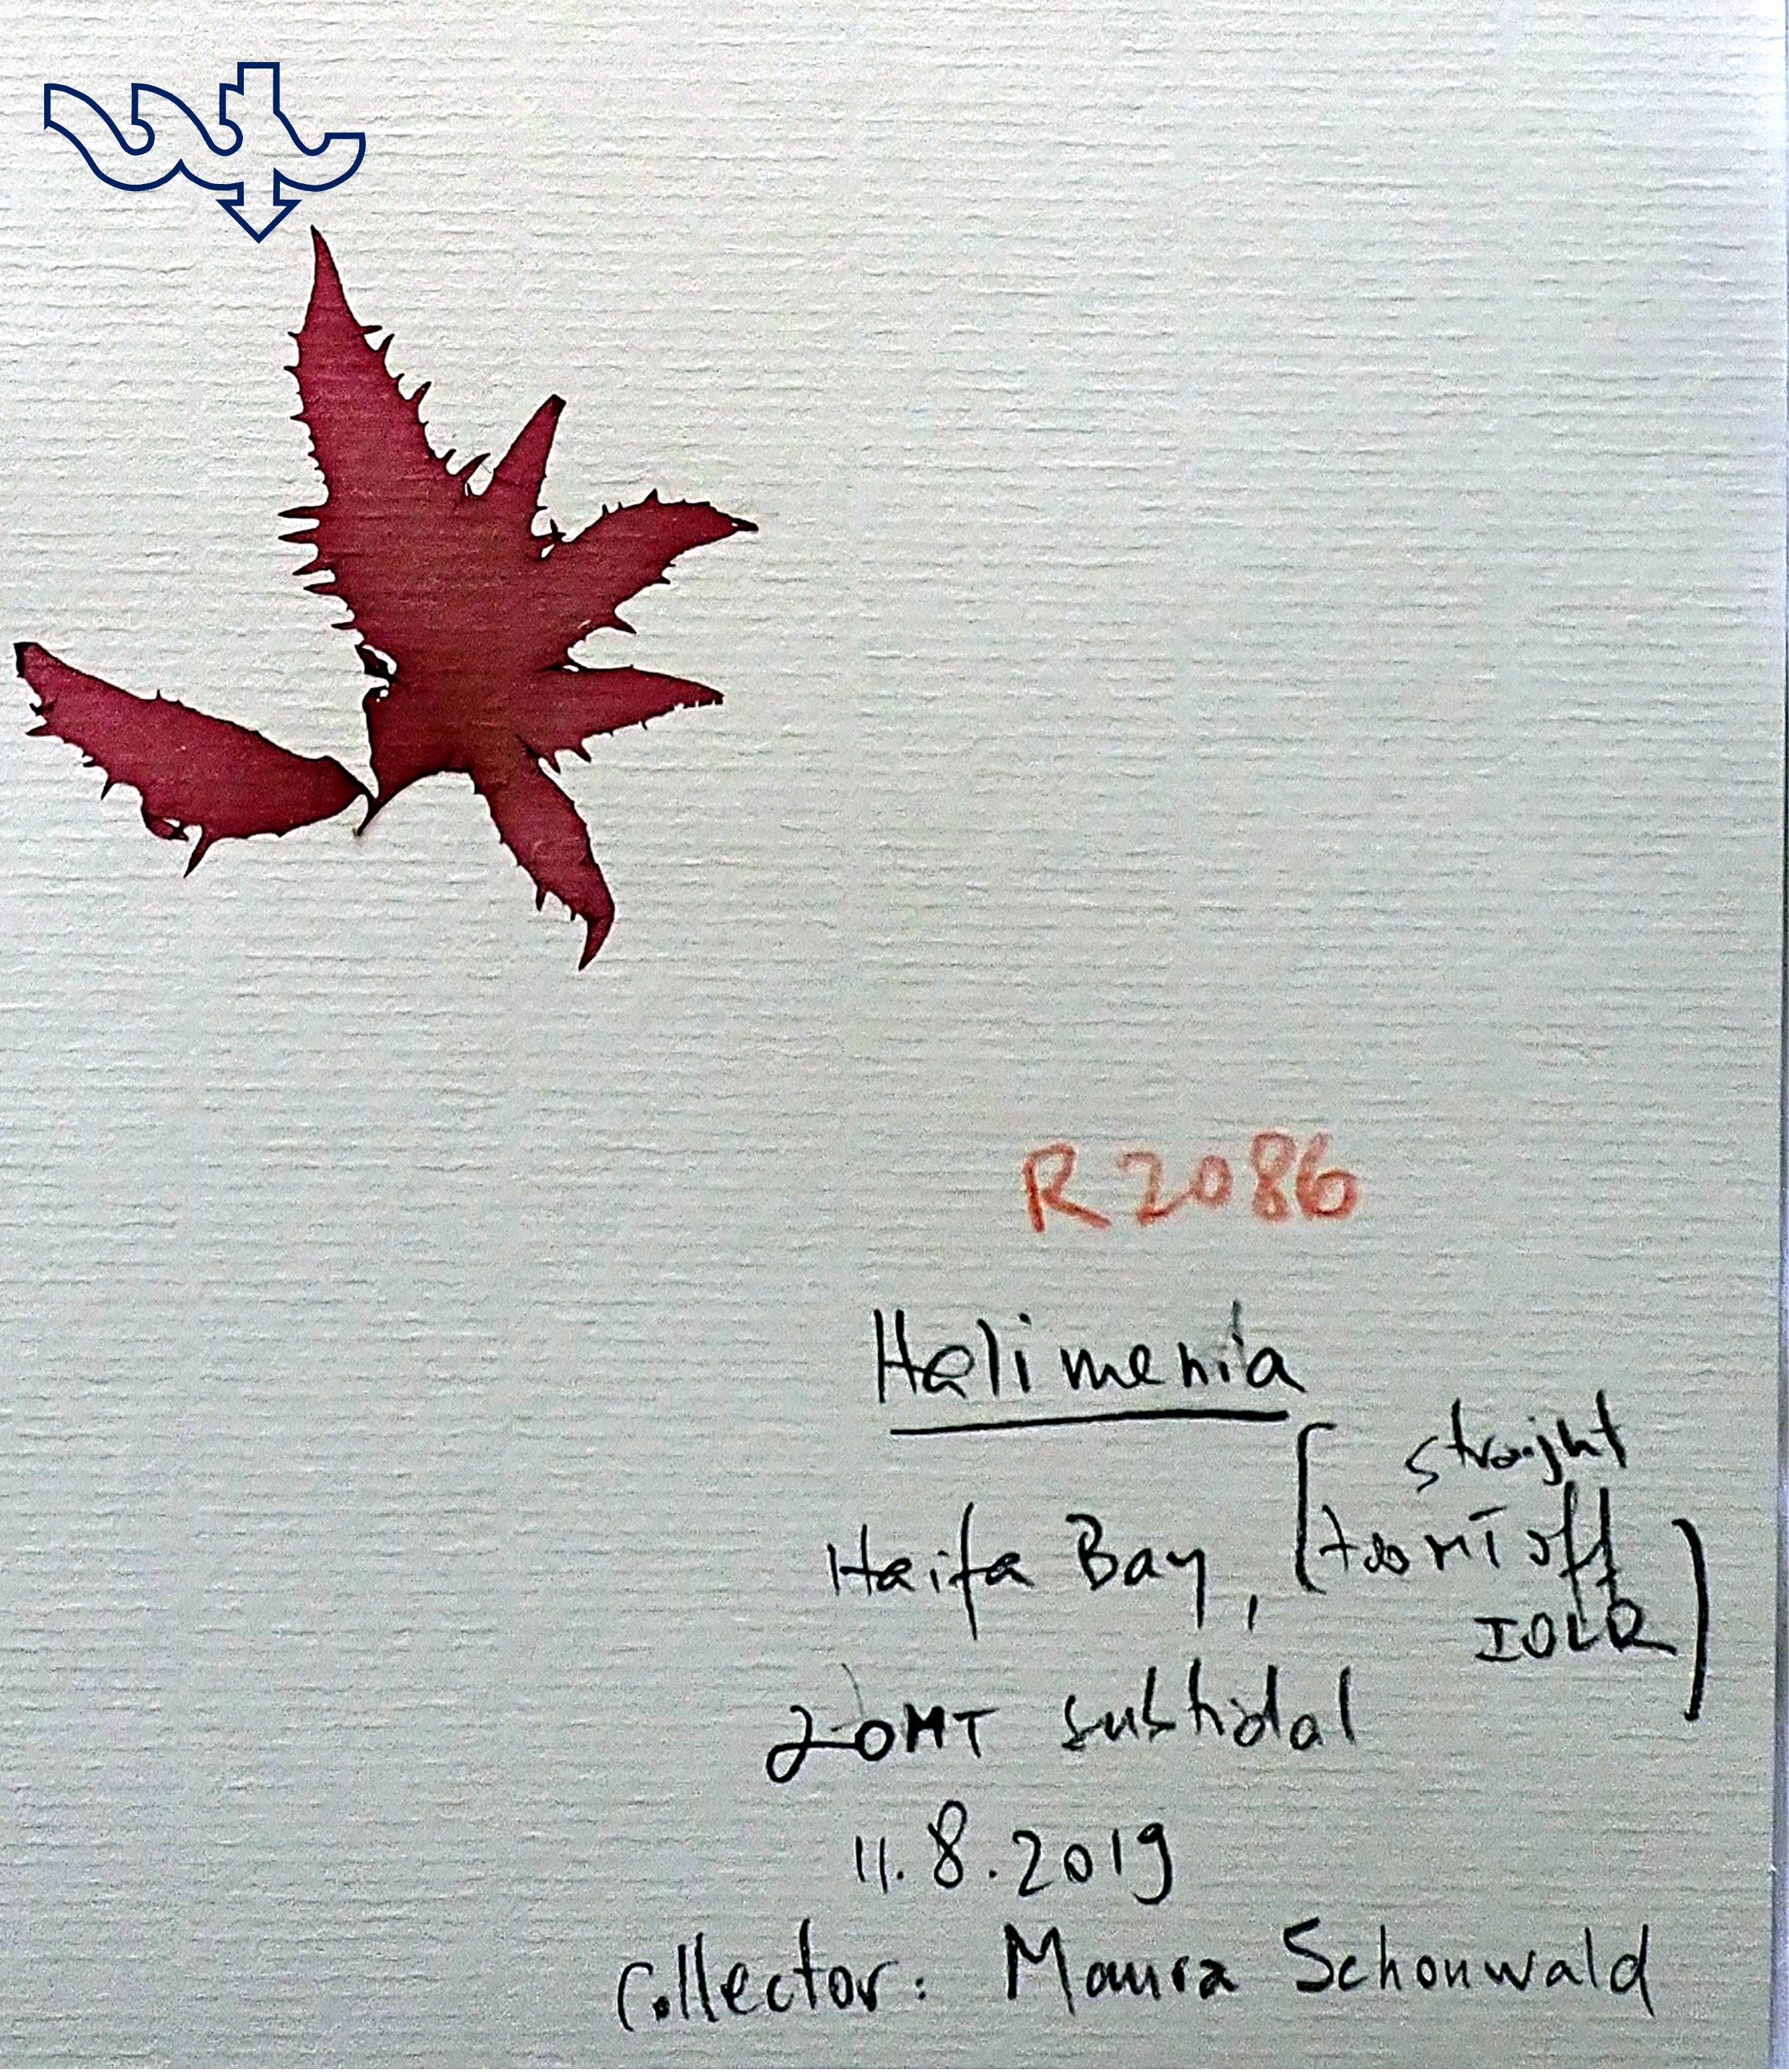 R2086
Halimenia
straight
Haifa Bay, [ MT off
IOLR )
20MT subtidal
11.8.2019
Collector: Maura Schonwald